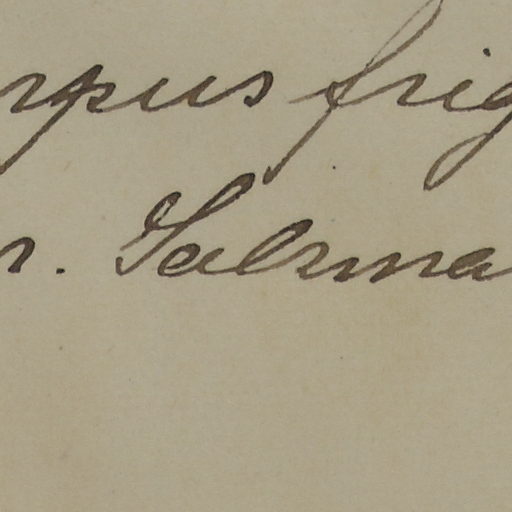 rpus frig
r. Salma